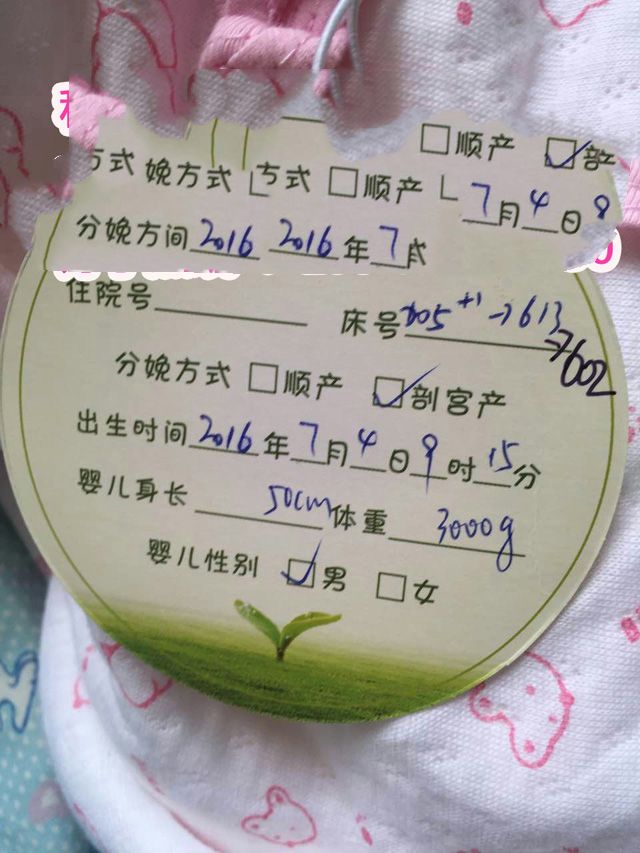 □顺产 ☑剖
方式 娩方式 方式 □顺产 7月4日9
分娩方间2016 2016年7
住院号 床号705+1→613
→602
分娩方式 □顺产 ☑剖宫产
出生时间2016年7月4日9时15分
婴儿身长 50cm体重 3000g
婴儿性别 ☑男 □女